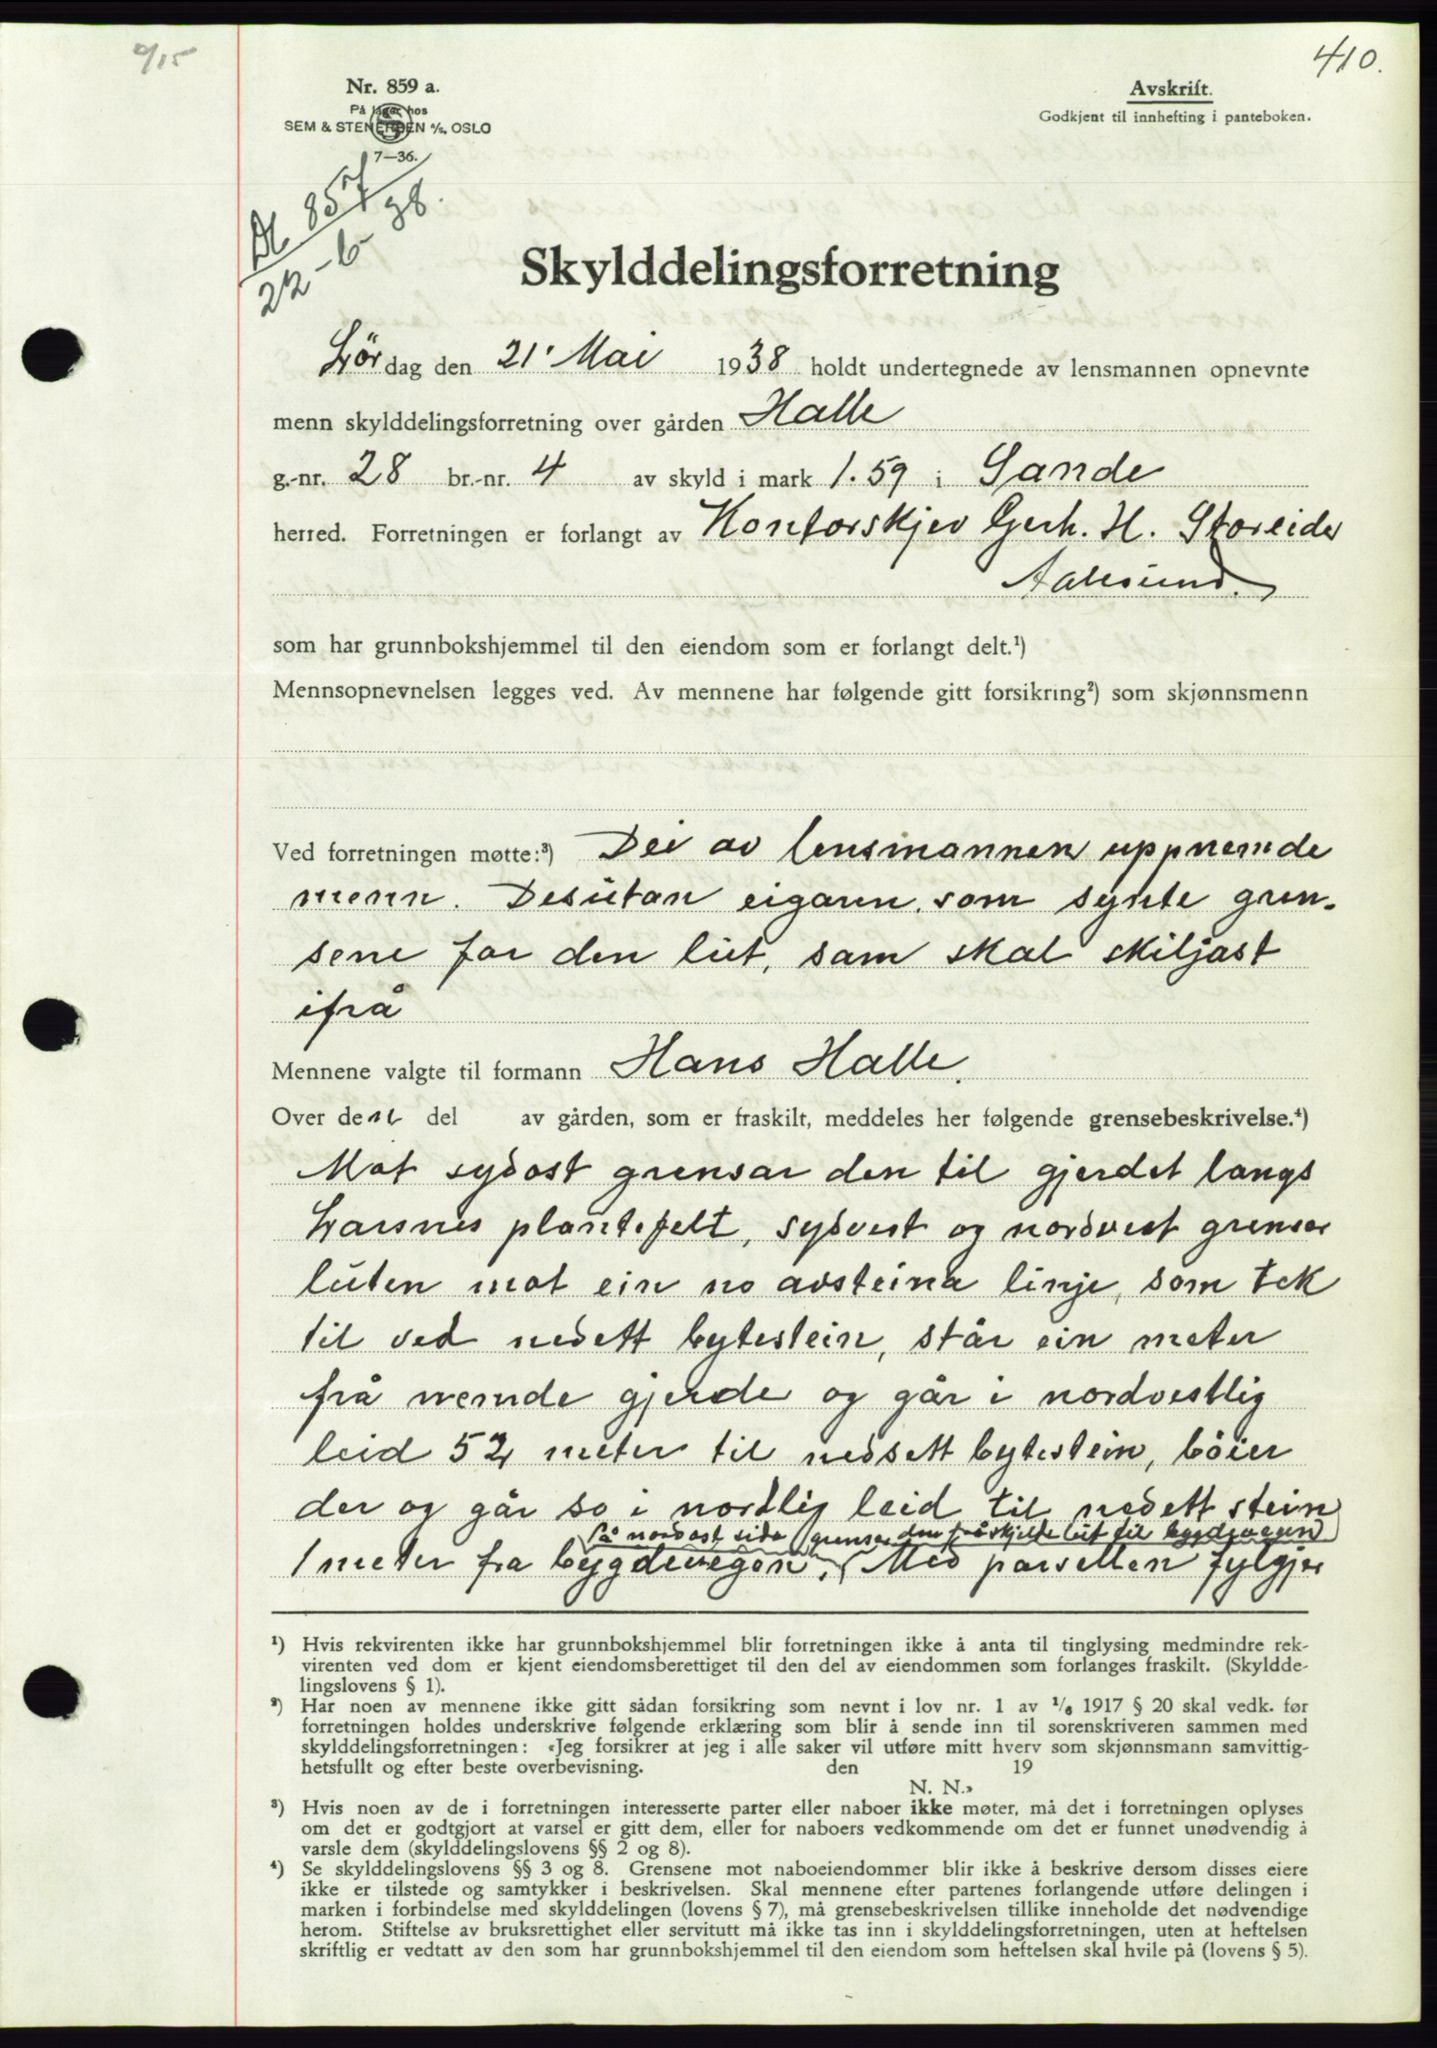 9/15
410.
Nr. 859 a.
På lager hos
SEM & STENERSEN A/S, OSLO
7—36.
Avskrift.
Godkjent til innhefting i panteboken.
Db 857
22-6-38.
Skylddelingsforretning
Lördag den 21' Mai 1938 holdt undertegnede av lensmannen opnevnte
menn skylddelingsforretning over gården Halle
g.-nr. 28 br.-nr. 4 av skyld i mark 1.59 i Sande
herred. Forretningen er forlangt av Kontorskjev Gerh. H. Storeide
Aalesund.
som har grunnbokshjemmel til den eiendom som er forlangt delt.¹)
Mennsopnevnelsen legges ved. Av mennene har følgende gitt forsikring²) som skjønnsmenn
Ved forretningen møtte:³) Dei av lensmannen uppnemde
menn. Desutan eigaren som synte gren-
sene for den lut, som skal skiljast
ifrå
Mennene valgte til formann Hans Halle.
Over den del av gården, som er fraskilt, meddeles her følgende grensebeskrivelse.⁴)
Mot sydost grensar den til gjerdet langs
Larsnes plantefelt, sydvest og nordvest grensar
luten mot ein no avsteina linje, som tek
til ved nedsett bytestein, står ein meter
frå nemde gjerde og går i nordvestlig
leid 52 meter til nedsett bytestein, böier
der og går so i nordlig leid til nedsett stein
På nordost sida grensar den fråskjelte lut til bygdevegen
1 meter fra bygdevegen. Med parsellen fylgjer
¹) Hvis rekvirenten ikke har grunnbokshjemmel blir forretningen ikke å anta til tinglysing medmindre rek-
virenten ved dom er kjent eiendomsberettiget til den del av eiendommen som forlanges fraskilt. (Skyldde-
lingslovens § 1).
²) Har noen av mennene ikke gitt sådan forsikring som nevnt i lov nr. 1 av 1/6 1917 § 20 skal vedk. før
forretningen holdes underskrive følgende erklæring som blir å sende inn til sorenskriveren sammen med
skylddelingsforretningen: «Jeg forsikrer at jeg i alle saker vil utføre mitt hverv som skjønnsmann samvittig-
hetsfullt og efter beste overbevisning. den 19
N. N.»
³) Hvis noen av de i forretningen interesserte parter eller naboer ikke møter, må det i forretningen oplyses
om det er godtgjort at varsel er gitt dem, eller for naboers vedkommende om det er funnet unødvendig å
varsle dem (skylddelingslovens §§ 2 og 8).
⁴) Se skylddelingslovens §§ 3 og 8. Grensene mot naboeiendommer blir ikke å beskrive dersom disses eiere
ikke er tilstede og samtykker i beskrivelsen. Skal mennene efter partenes forlangende utføre delingen i
marken i forbindelse med skylddelingen (lovens § 7), må grensebeskrivelsen tillike inneholde det nødvendige
herom. Stiftelse av bruksrettighet eller servitutt må ikke tas inn i skylddelingsforretningen, uten at heftelsen
skriftlig er vedtatt av den som har grunnbokshjemmel til den eiendom som heftelsen skal hvile på (lovens § 5).